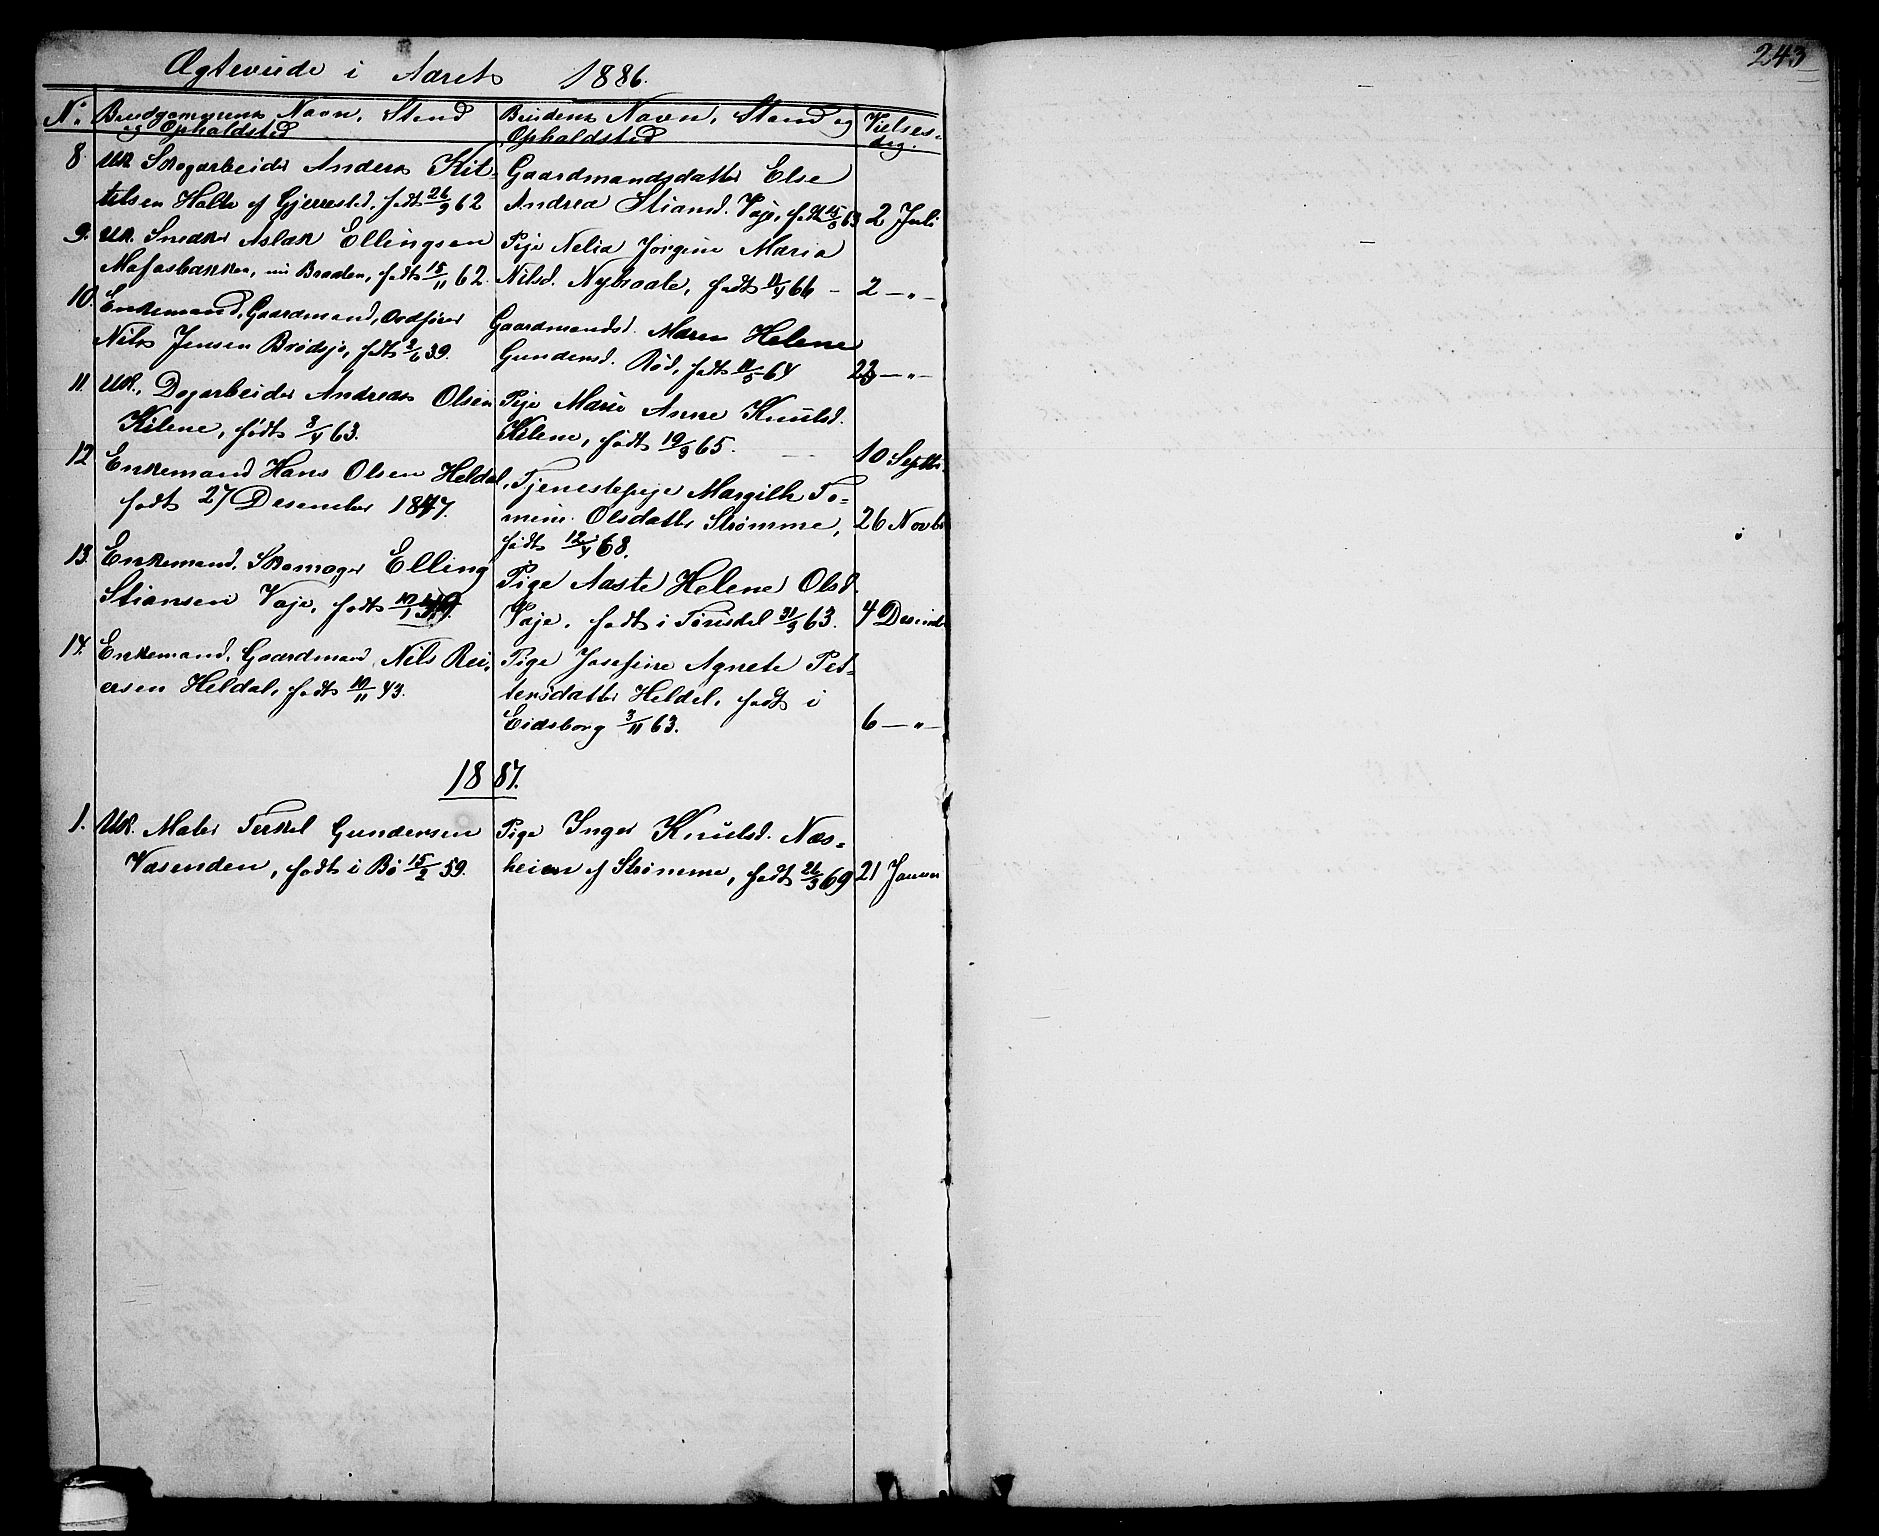 243
Ægteviede i Aaret 1886.
No. Brudgommens Navn, Stand og Opholdsted
Brudens Navn, Stand og Opholdsted
Vielses-dag.
8. Uk Skogarbeider Anders Kit-
telsen Holte af Gjerrestad, født 26/9 62
Gaardmandsdatter Else
Andrea Stiansd. Vaje, født 63
2 Juli
9. Uk. Snedker Aslak Ellingsen
Braaten, født 15/11 62.
Pige Nelia Jørgine Maria
Nilsd. født 66 -
2 — " —
10. Enkemand, Gaardmand, Ordfører
Nils Jensen Brødsjø, født 39.
Gaardmandsd. Maren Helene
Gundersd. Rød, født 64
23 — " —
11. Uk., Dagarbeider Andreas Olsen
Kilene, født 63.
Pige Marie Anne Knutsd.
Kilene, født 19/9 65.
10 Septbr.
12 Enkemand Hans Olsen Heldal,
født 27 Desember 1847.
Tjenestepige Margith To-
mine Olsdatter Strømme,
født 68.
26 Novbr
13. Enkemand, Skomager Elling
Stiansen Vaje, født
Pige Aaste Helene Olsd.
Vaje, født i Tørisdal 31/3 63.
4 Desemb
14. Enkemand, Gaardmand, Nils Rei-
ersen Heldal, født 10/11 43.
Pige Josefine Agnete Pet-
tersdatter Heldal, født i
Eidsborg 3/11 63.
6 — " —
1887.
1. Uk. Maler Terkel Gundersen
Vasenden, født i Bø 15/2 59.
Pige Inger Knutsd. Næs-
heim af Strømme, født 26/3 69
21 Januar